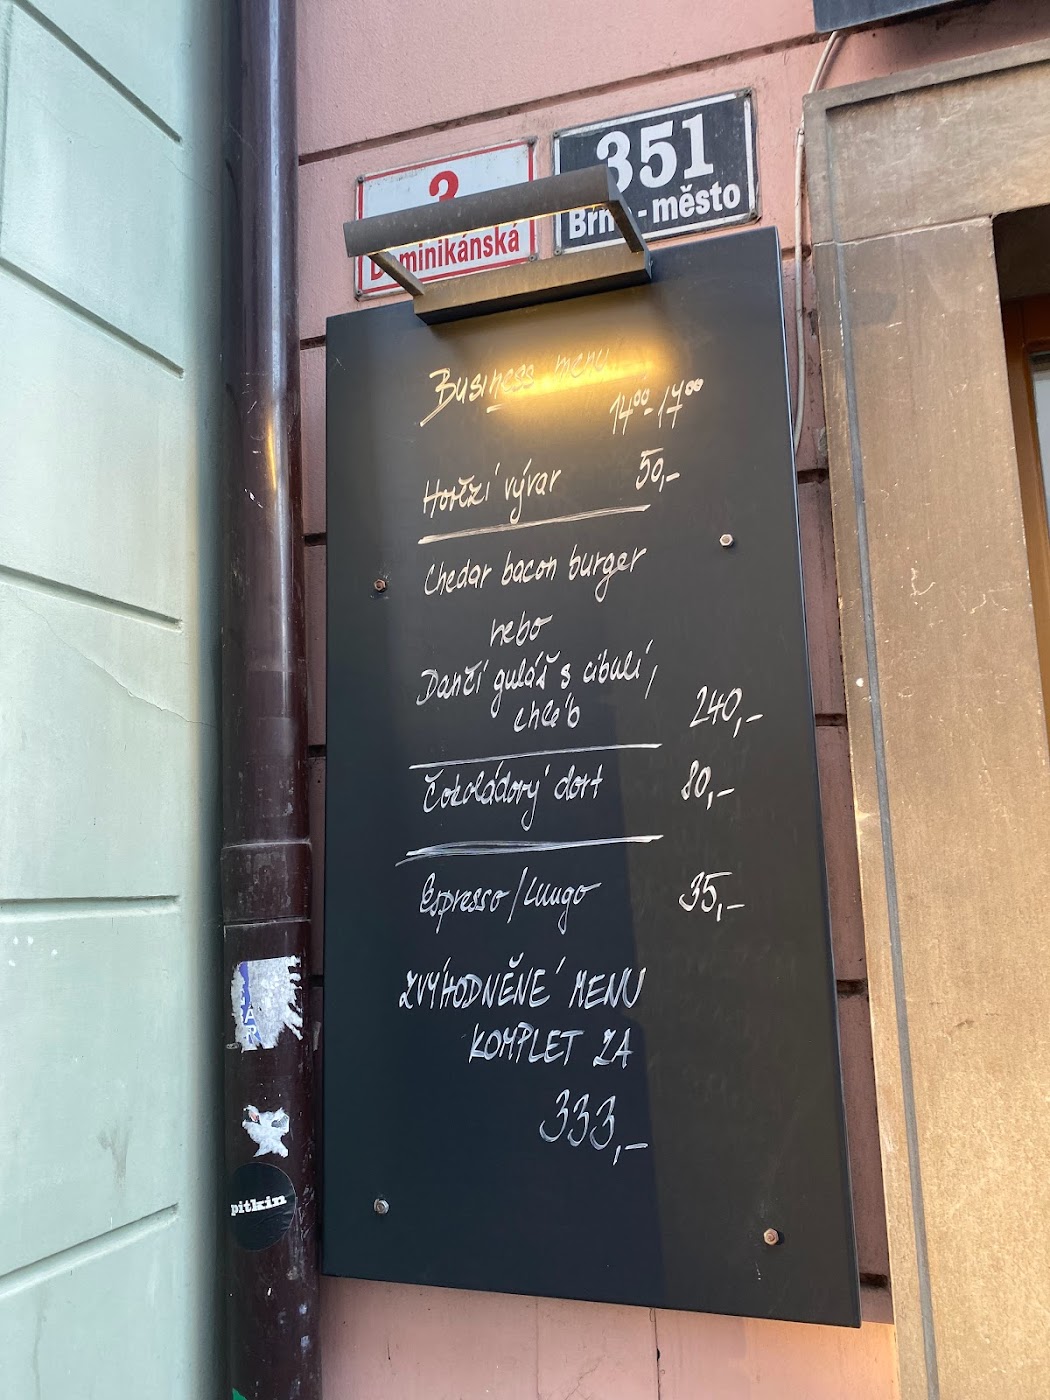 3
Dominikánská
351
Brno-město
Business menu
14⁰⁰-17⁰⁰
Hovězí vývar 50,-
Chedar bacon burger
nebo
Dančí guláš s cibulí,
chléb 240,-
Čokoládový dort 80,-
Espresso/Lungo 35,-
ZVÝHODNĚNÉ MENU
KOMPLET ZA
333,-
pitkin